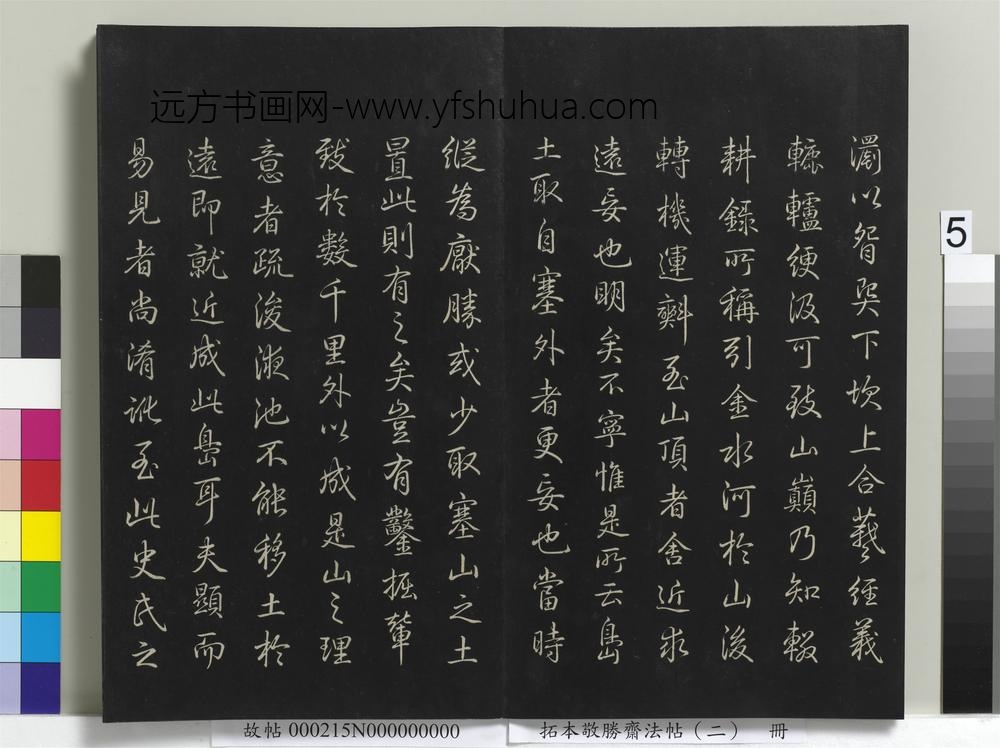 远方书画网-www.yfshuhua.com
濁以眢巽下坎上合羲經義
轆轤綆汲可致山巔乃知輟
耕錄所稱引金水河於山後
轉機運㪺至山頂者舍近求
遠妄也明矣不寧惟是所云島
土取自塞外者更妄也當時
縱為厭勝或少取塞山之土
置此則有之矣豈有鑿掘輦
致於數千里外以成是山之理
意者疏浚液池不能移土於
遠即就近成此島耳夫顯而
易見者尚淆訛至此史氏之
5
故帖 000215N000000000
拓本敬勝齋法帖（二） 冊